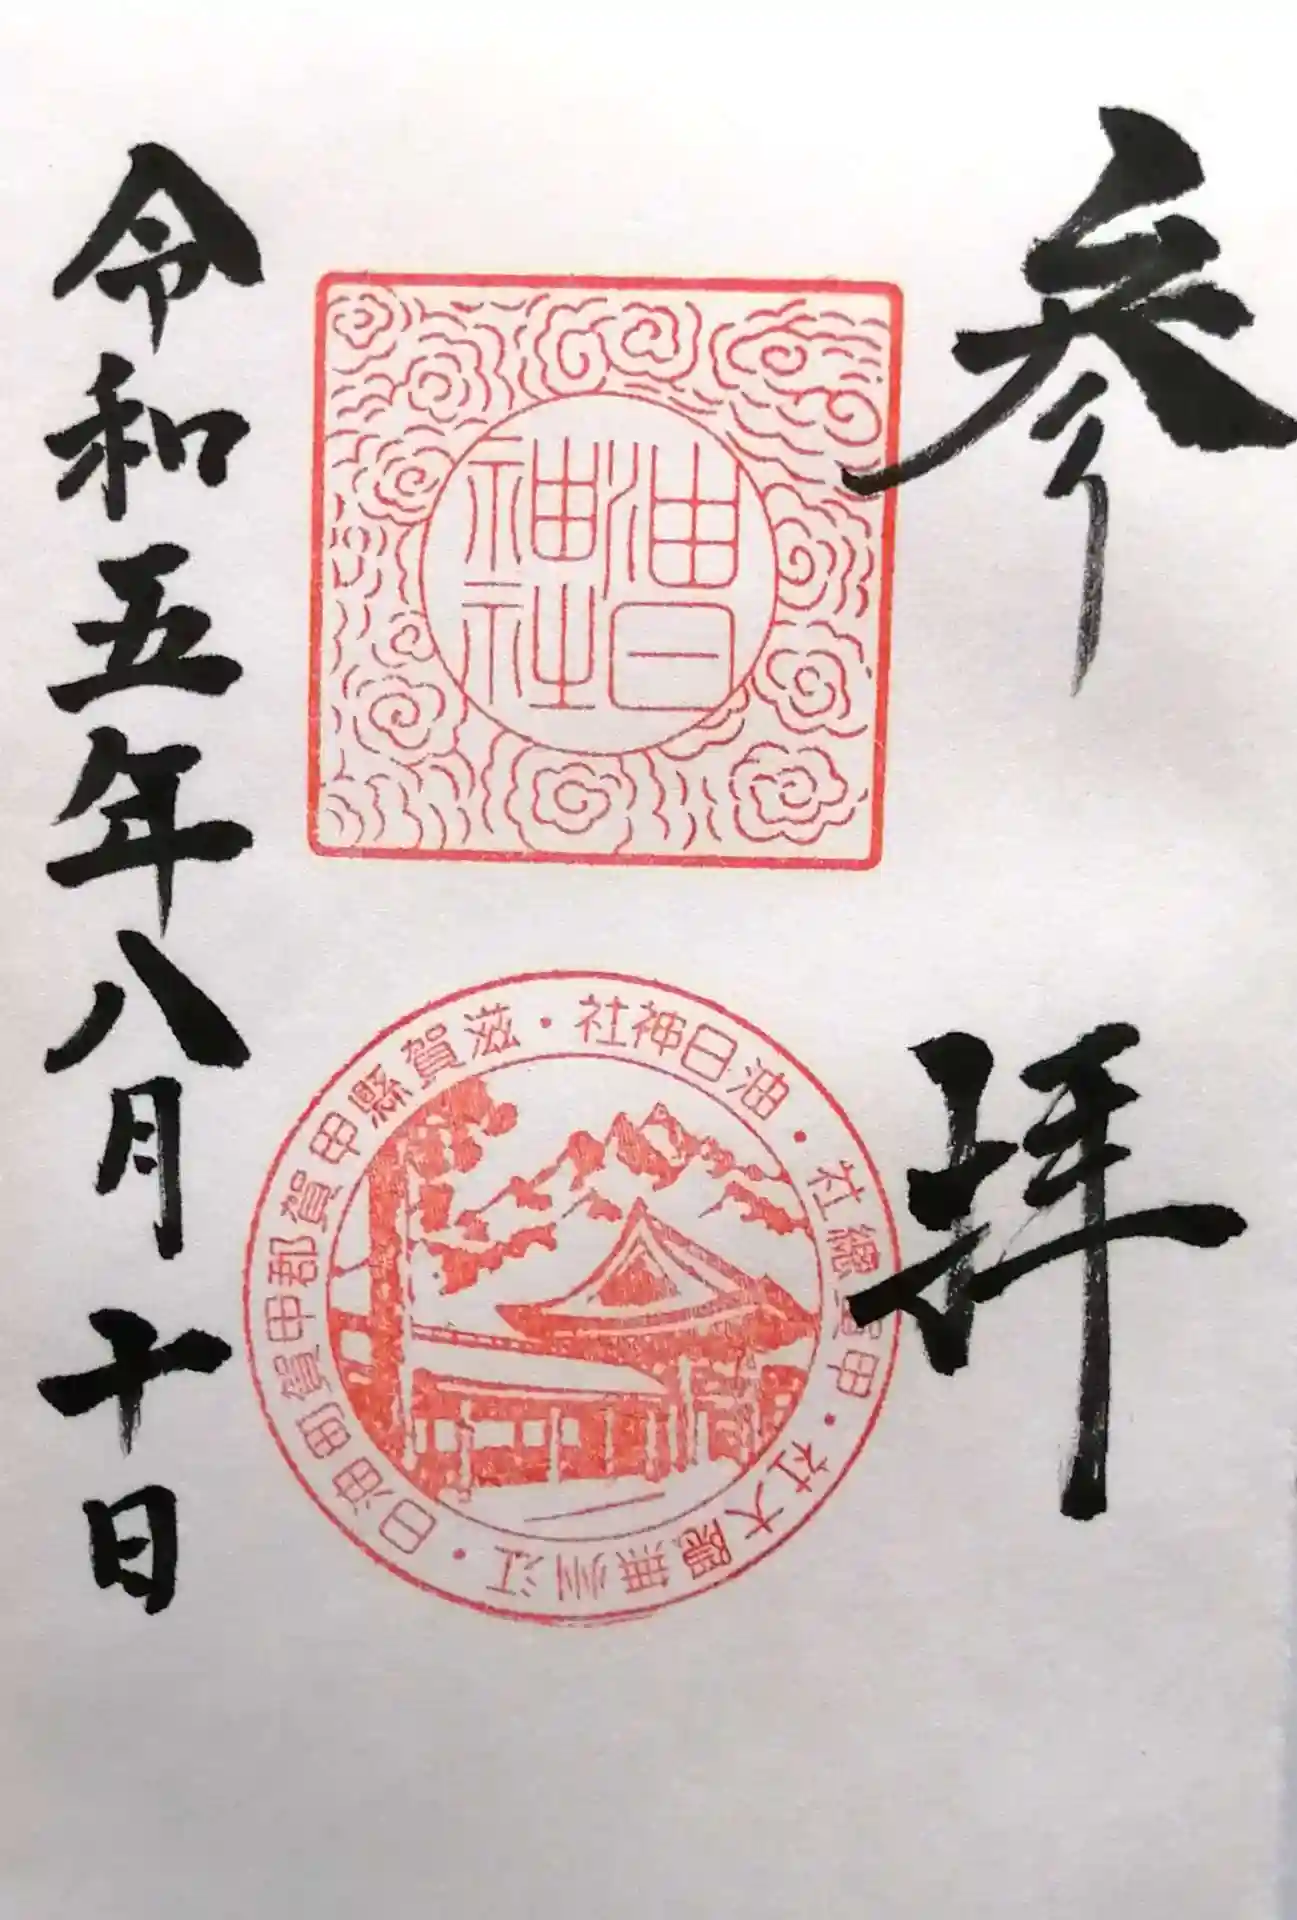 参拝
油日
神社
油日神社・滋賀縣甲賀郡甲賀町油日・江州無隈大社・甲賀總社・
令和五年八月十日